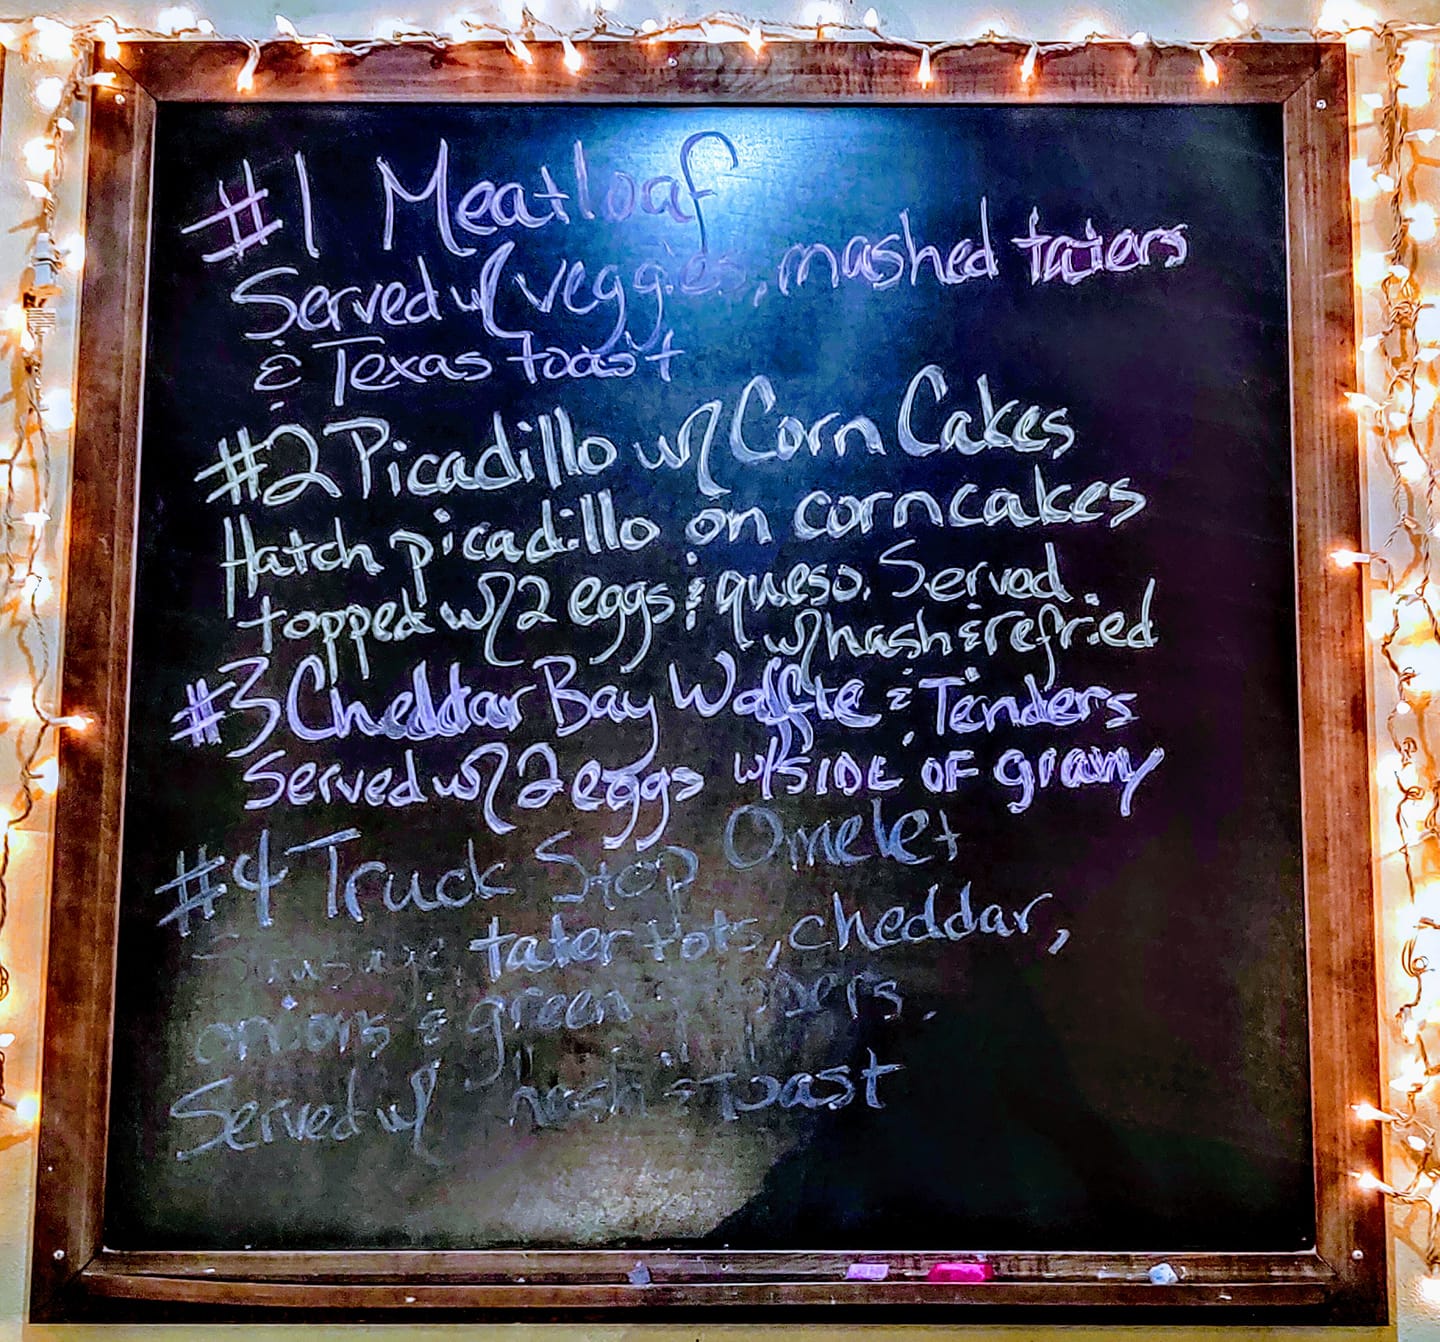 #1 Meatloaf
Served w/ veggies, mashed taters
& Texas toast
#2 Picadillo w/ Corn Cakes
Hatch picadillo on corncakes
topped w/ 2 eggs & queso. Served
w/ hash & refried
#3 Cheddar Bay Waffle & Tenders
Served w/ 2 eggs w/ SIDE OF gravy
#4 Truck Stop Omelet
Sausage, tater tots, cheddar,
onions & green peppers.
Served w/ hash & Toast